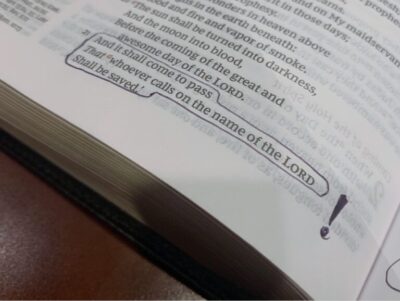 and on My maidservan
in those days;
wonders in heaven above
in the earth beneath:
and fire and vapor of smoke.
The sun shall be turned into darkness,
And the moon into blood,
Before the coming of the great and
awesome day of the LORD.
21 And it shall come to pass
That whoever calls on the name of the LORD
Shall be saved.'
!